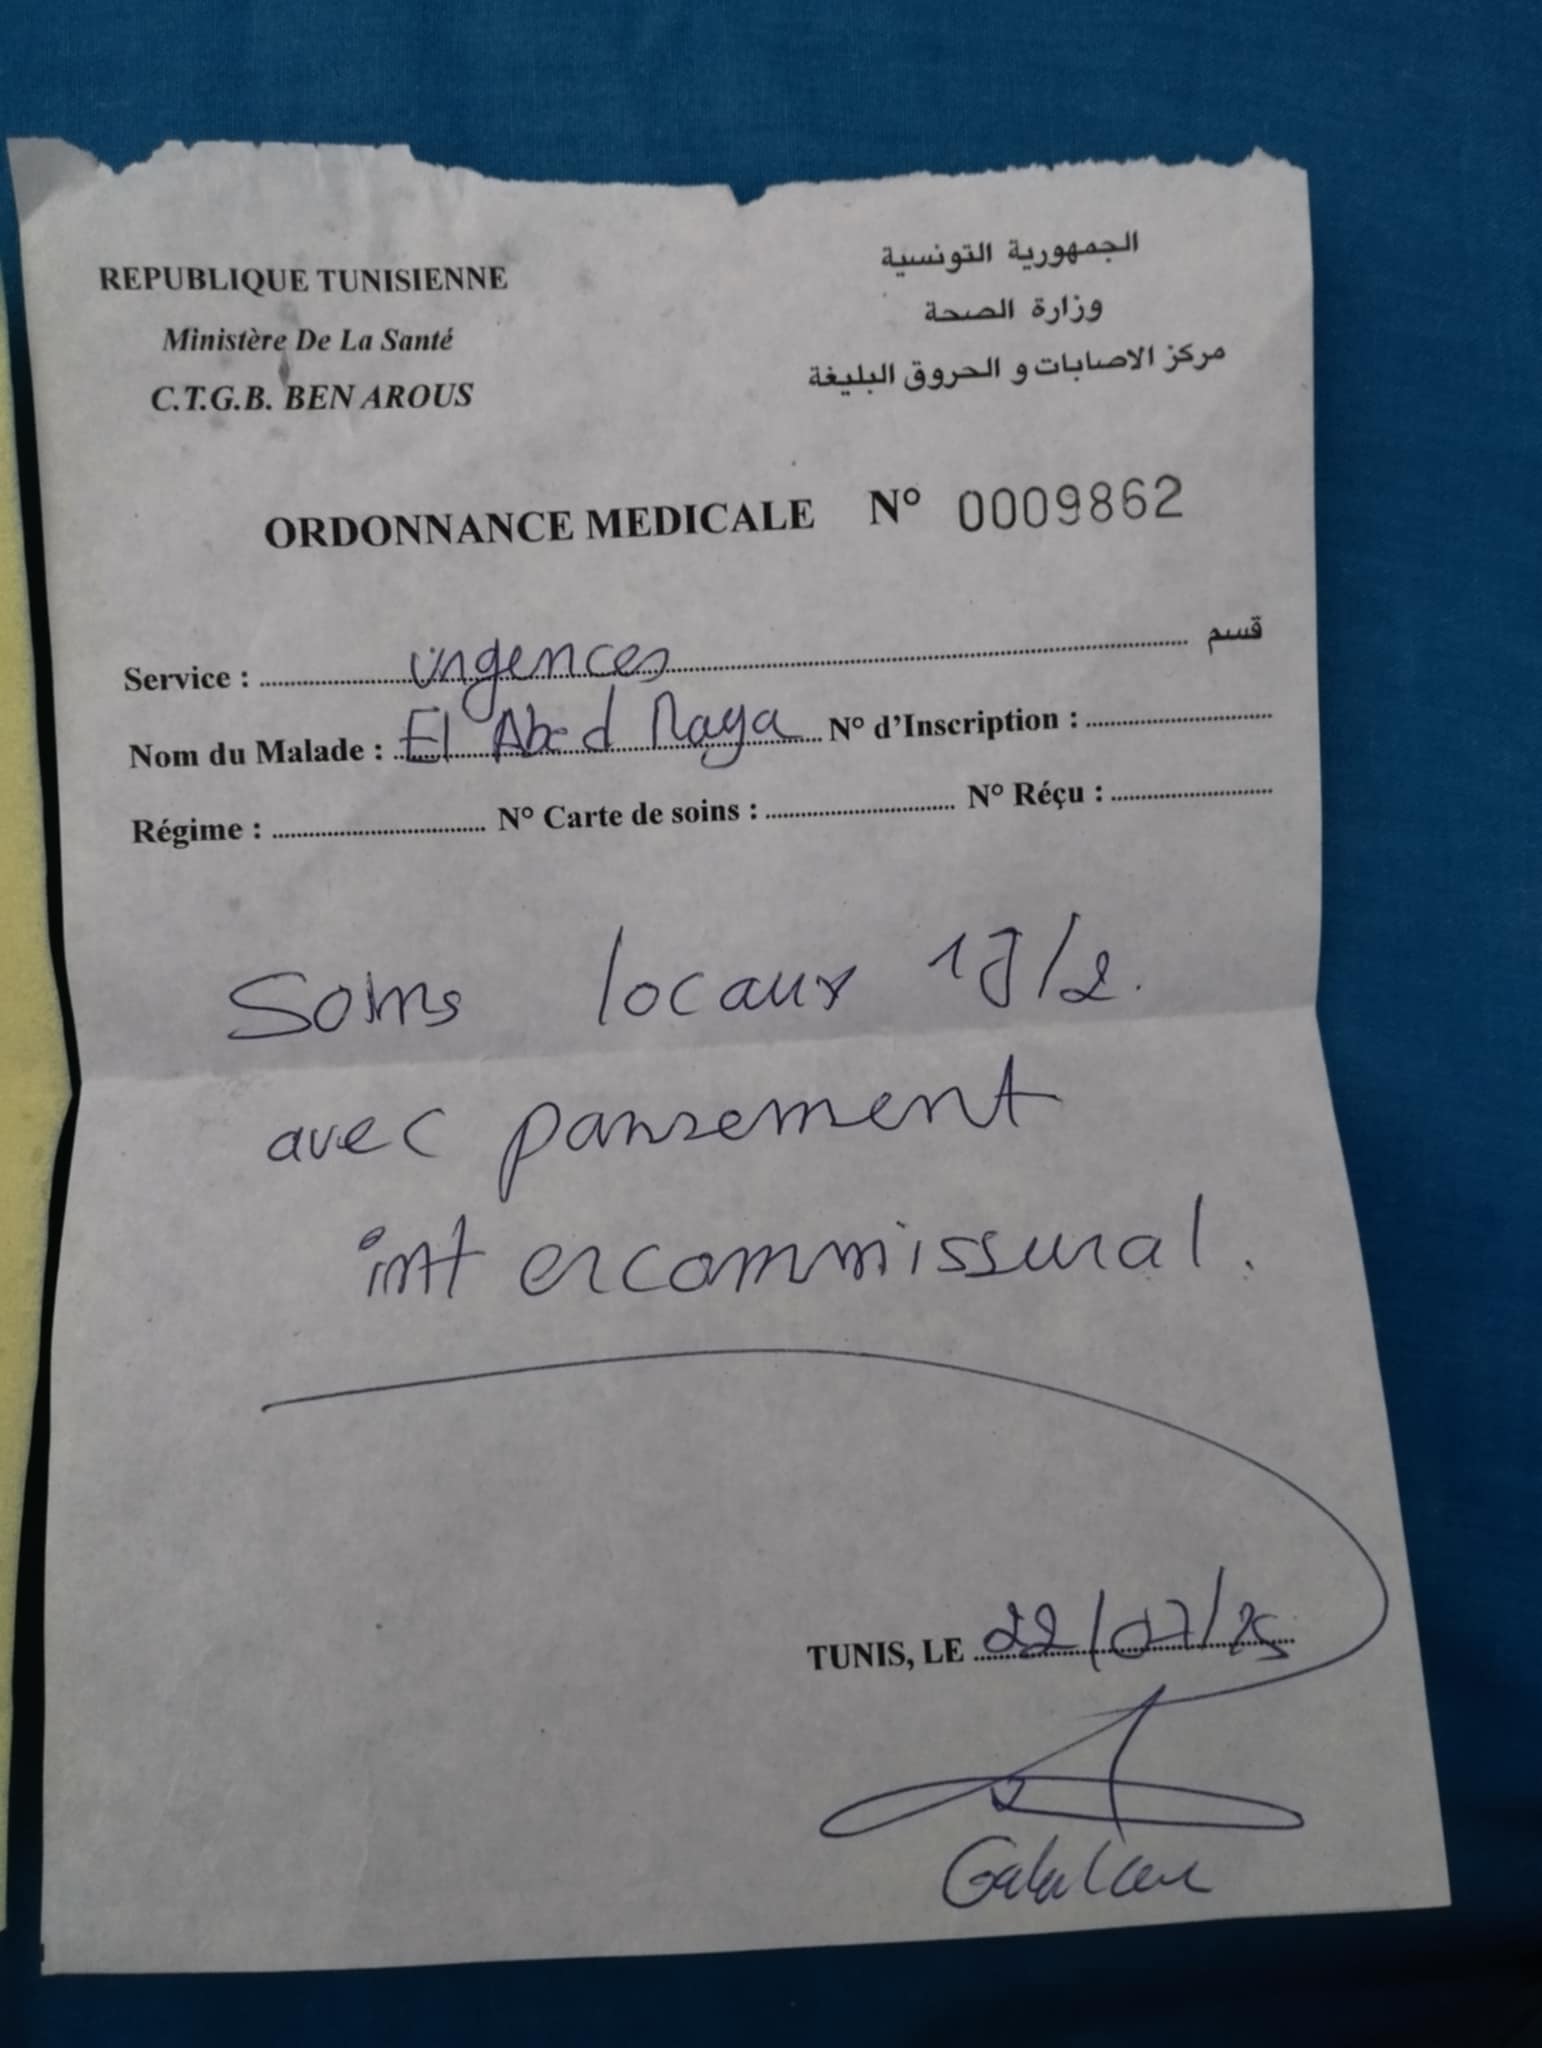 REPUBLIQUE TUNISIENNE
Ministère De La Santé
C.T.G.B. BEN AROUS
الجمهورية التونسية
وزارة الصحة
مركز الاصابات و الحروق البليغة
ORDONNANCE MEDICALE N° 0009862
Service : urgences قسم
Nom du Malade : El Abed Maya N° d'Inscription :
Régime : N° Carte de soins : N° Réçu :
Soins locaux 1J/2.
avec pansement
intercommissural.
TUNIS, LE 22/07/25